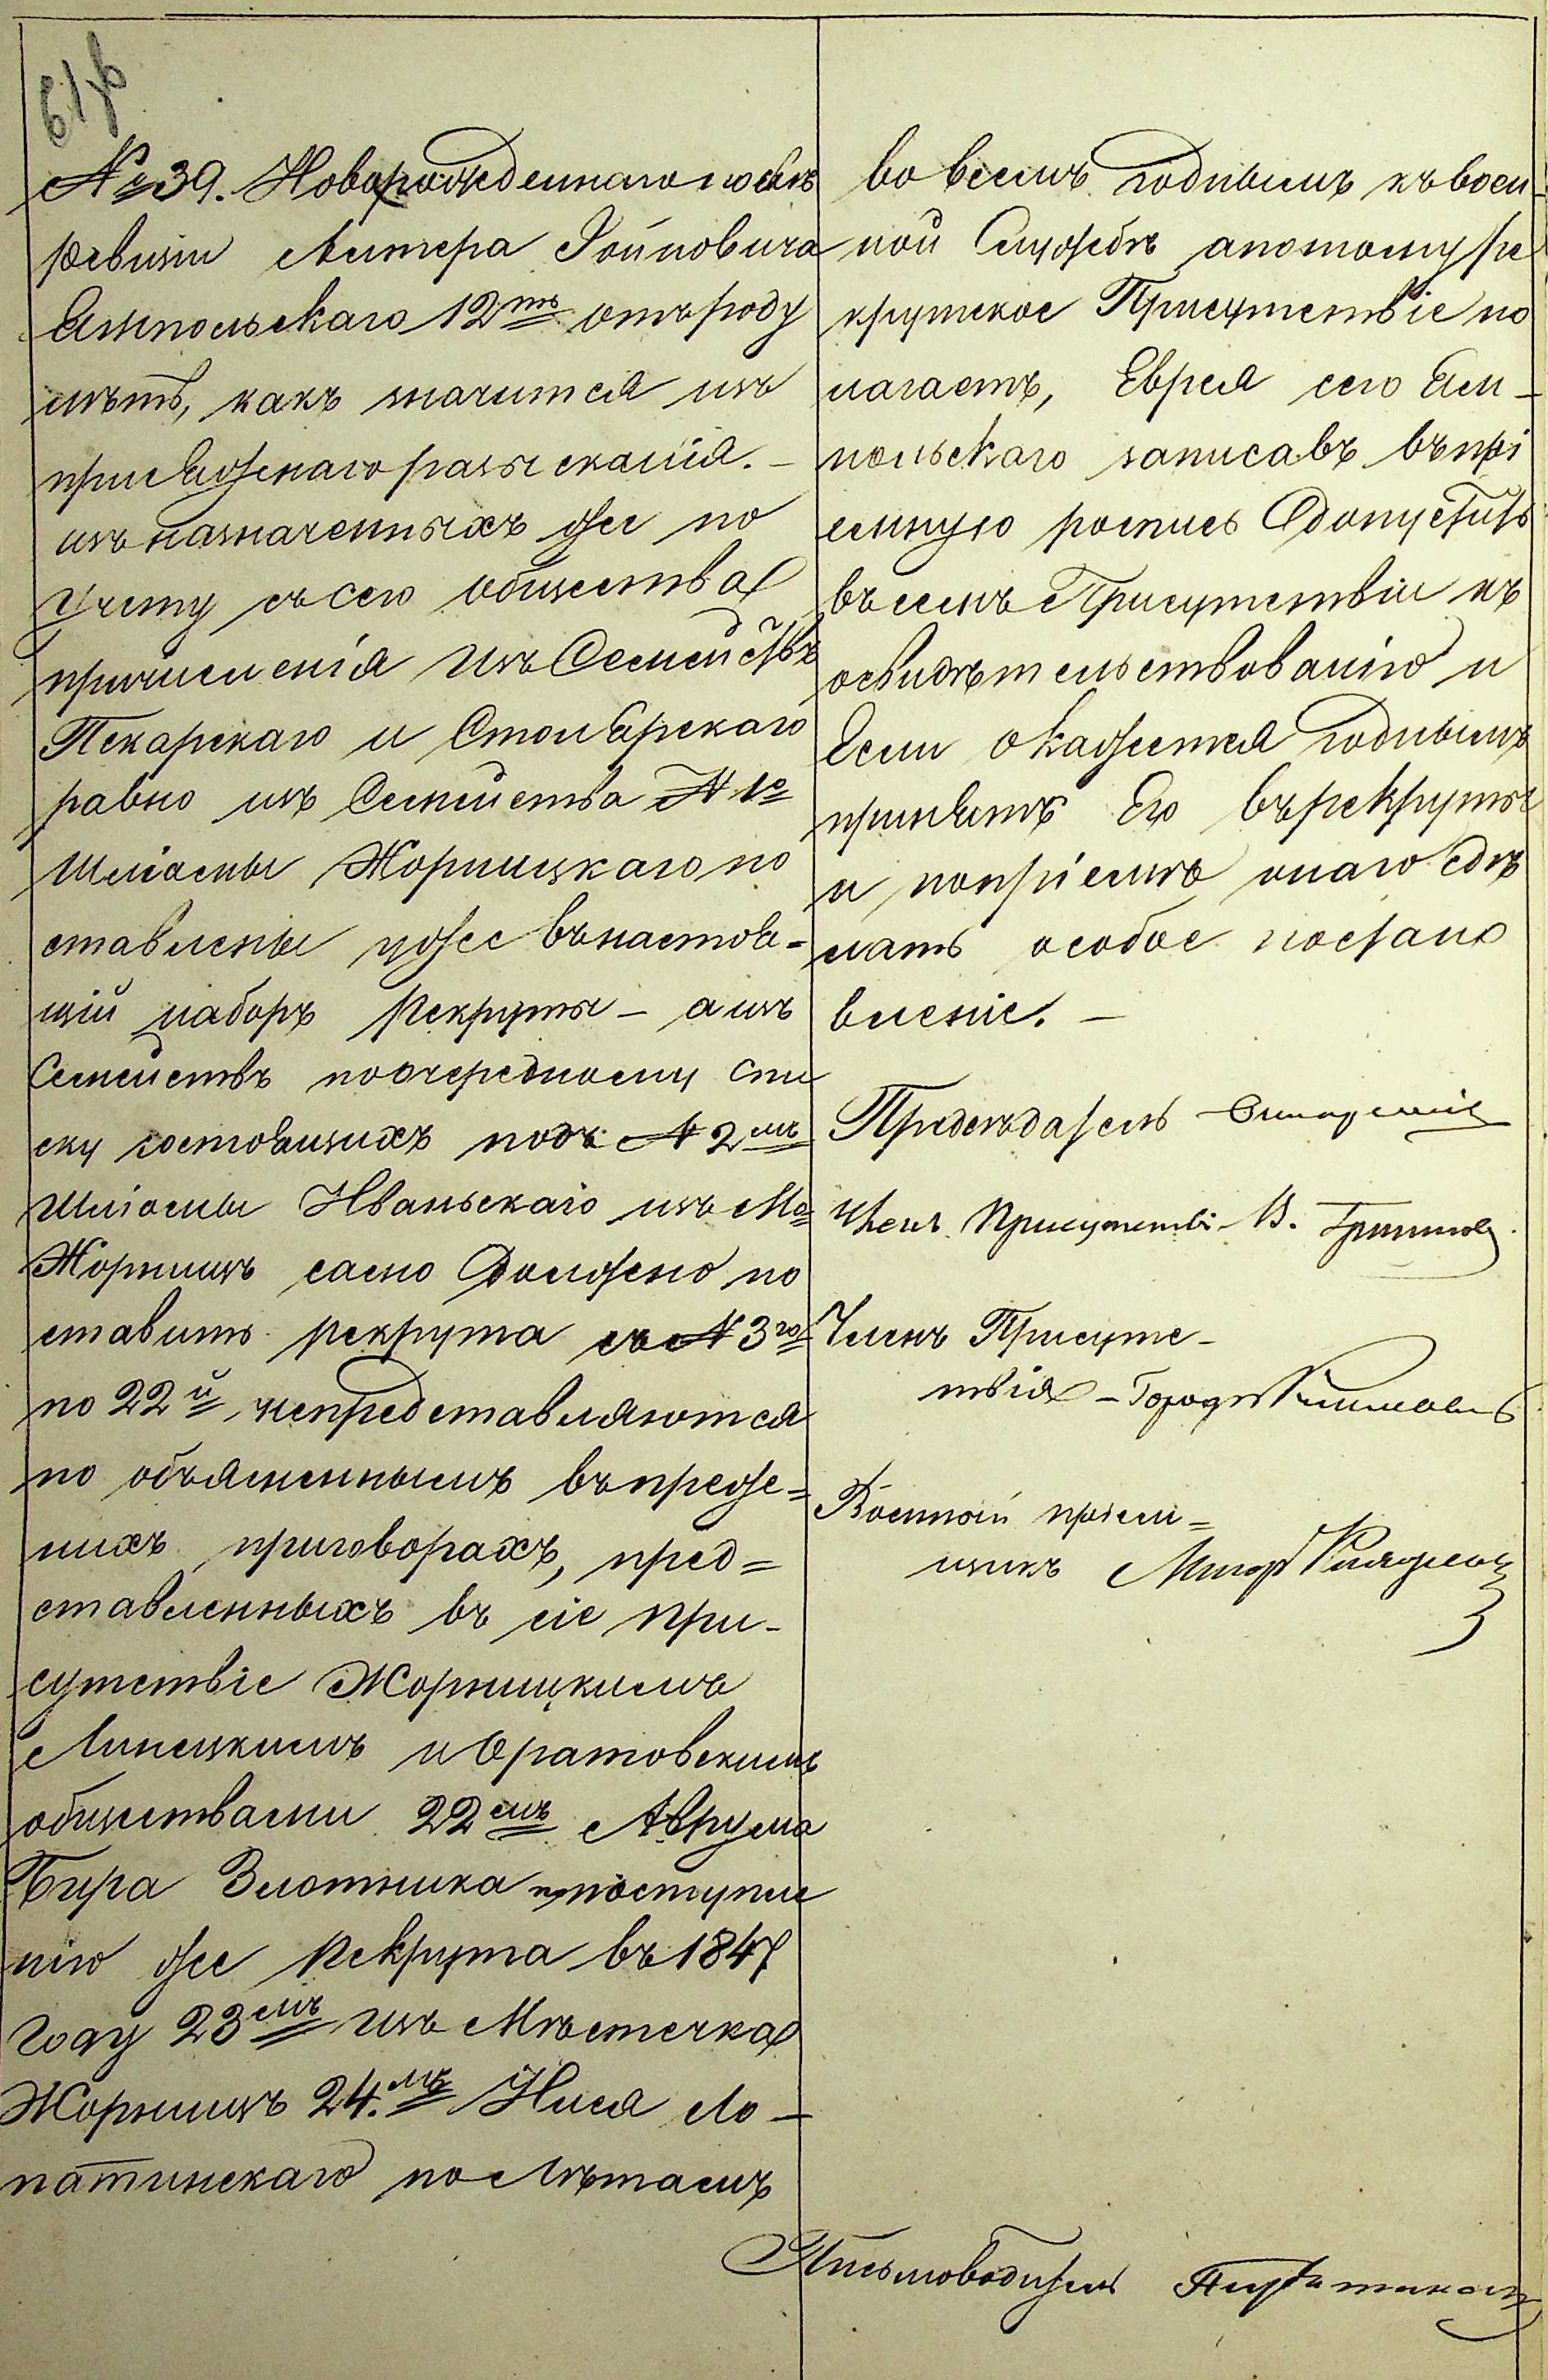 № 39. Новорожденнаго послѣ
ревизіи Лейзера Іойновича
Ямпольскаго 12ть отъ роду
лѣтъ, какъ значится изъ
присяжнаго разысканія. –
изъ назначенныхъ же по
учету съ сего общества
причисленія изъ Семействъ
Пекарскаго и Столярскаго
равно изъ Семейства № 1е
Шліомы Жорницкаго по
ставлены уже въ настоя-
щій наборъ рекруты – а изъ
Семействъ по очередному спи
ску состоящихъ подъ № 2мъ
Шліомы Иваньскаго изъ Мс
Жорнищъ само должно по
ставить рекрута съ № 3го
по 22й непредставляются
по объясненнымъ въ преже=
нихъ приговорахъ, пред=
ставленныхъ въ сіе при-
сутствіе Жорницкимъ
Линецкимъ и Оратовскимъ
обществами 22мъ Аврума
Бира Злотника по поступле
нію же рекрута въ 1847
году 23мъ изъ Мѣстечка
Жорнищъ 24.мъ Нися Ло-
патинскаго по лѣтамъ
во всемъ годнымъ къ воен-
ной Службѣ а потому ре
крутское Присутствіе по
лагаетъ, Еврея сего Ям-
польскаго записавъ въ прі
емную роспись допустить
въ семъ Присутствіи къ
освидѣтельствованію и
Если окажется годнымъ
принять Его въ рекруты
и по пріемѣ онаго сдѣ
лать особое постано
вленіе. –
Предсѣдатель
Членъ Присутстві. В.
Членъ Присутс-
твія – Городн
Военный пріем=
щикъ Маіоръ
Письмоводитель